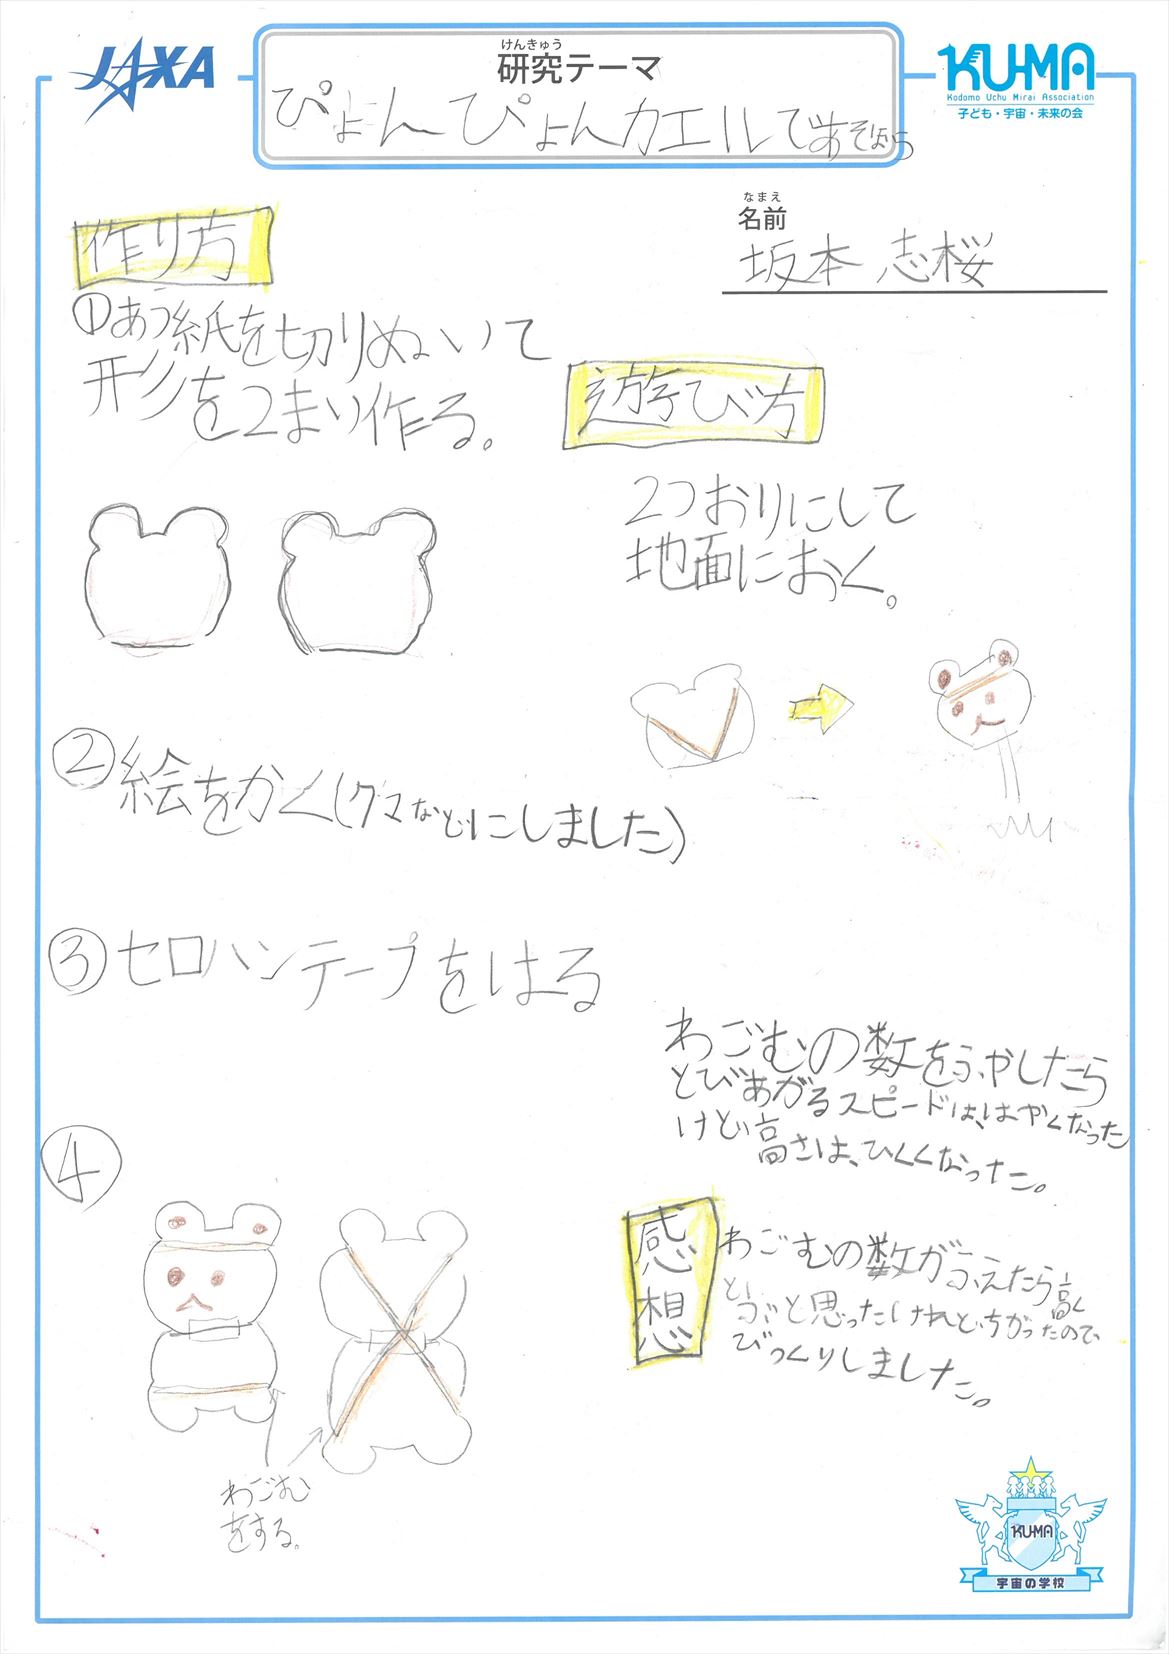 JAXA
けんきゅう
研究テーマ
ぴょんぴょんカエルであそぼう
KU-MA
Kodomo Uchu Mirai Association
子ども・宇宙・未来の会
なまえ
名前
坂本 志桜
作り方
①あう紙を切りぬいて
形を2まい作る。
遊び方
2つおりにして
地面におく。
②絵をかく(クマなどにしました)
③セロハンテープをはる
わごむの数をふやしたら
とびあがるスピードは、はやくなった
けど高さは、ひくくなった。
④
わごむ
をする。
感想
わごむの数がふえたら高く
とぶと思ったけれどちがったので
びっくりしました。
KUMA
宇宙の学校